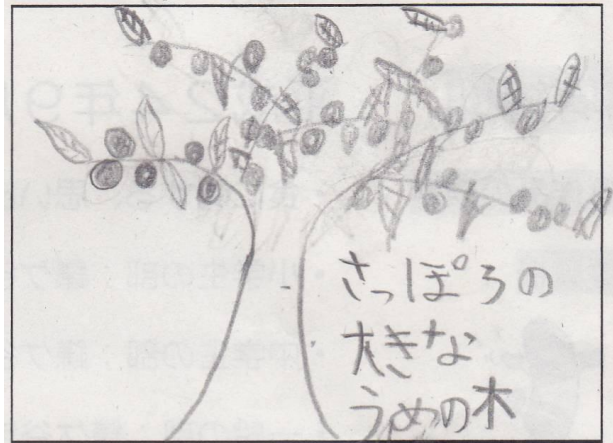 さっぽろの
大きな
うめの木